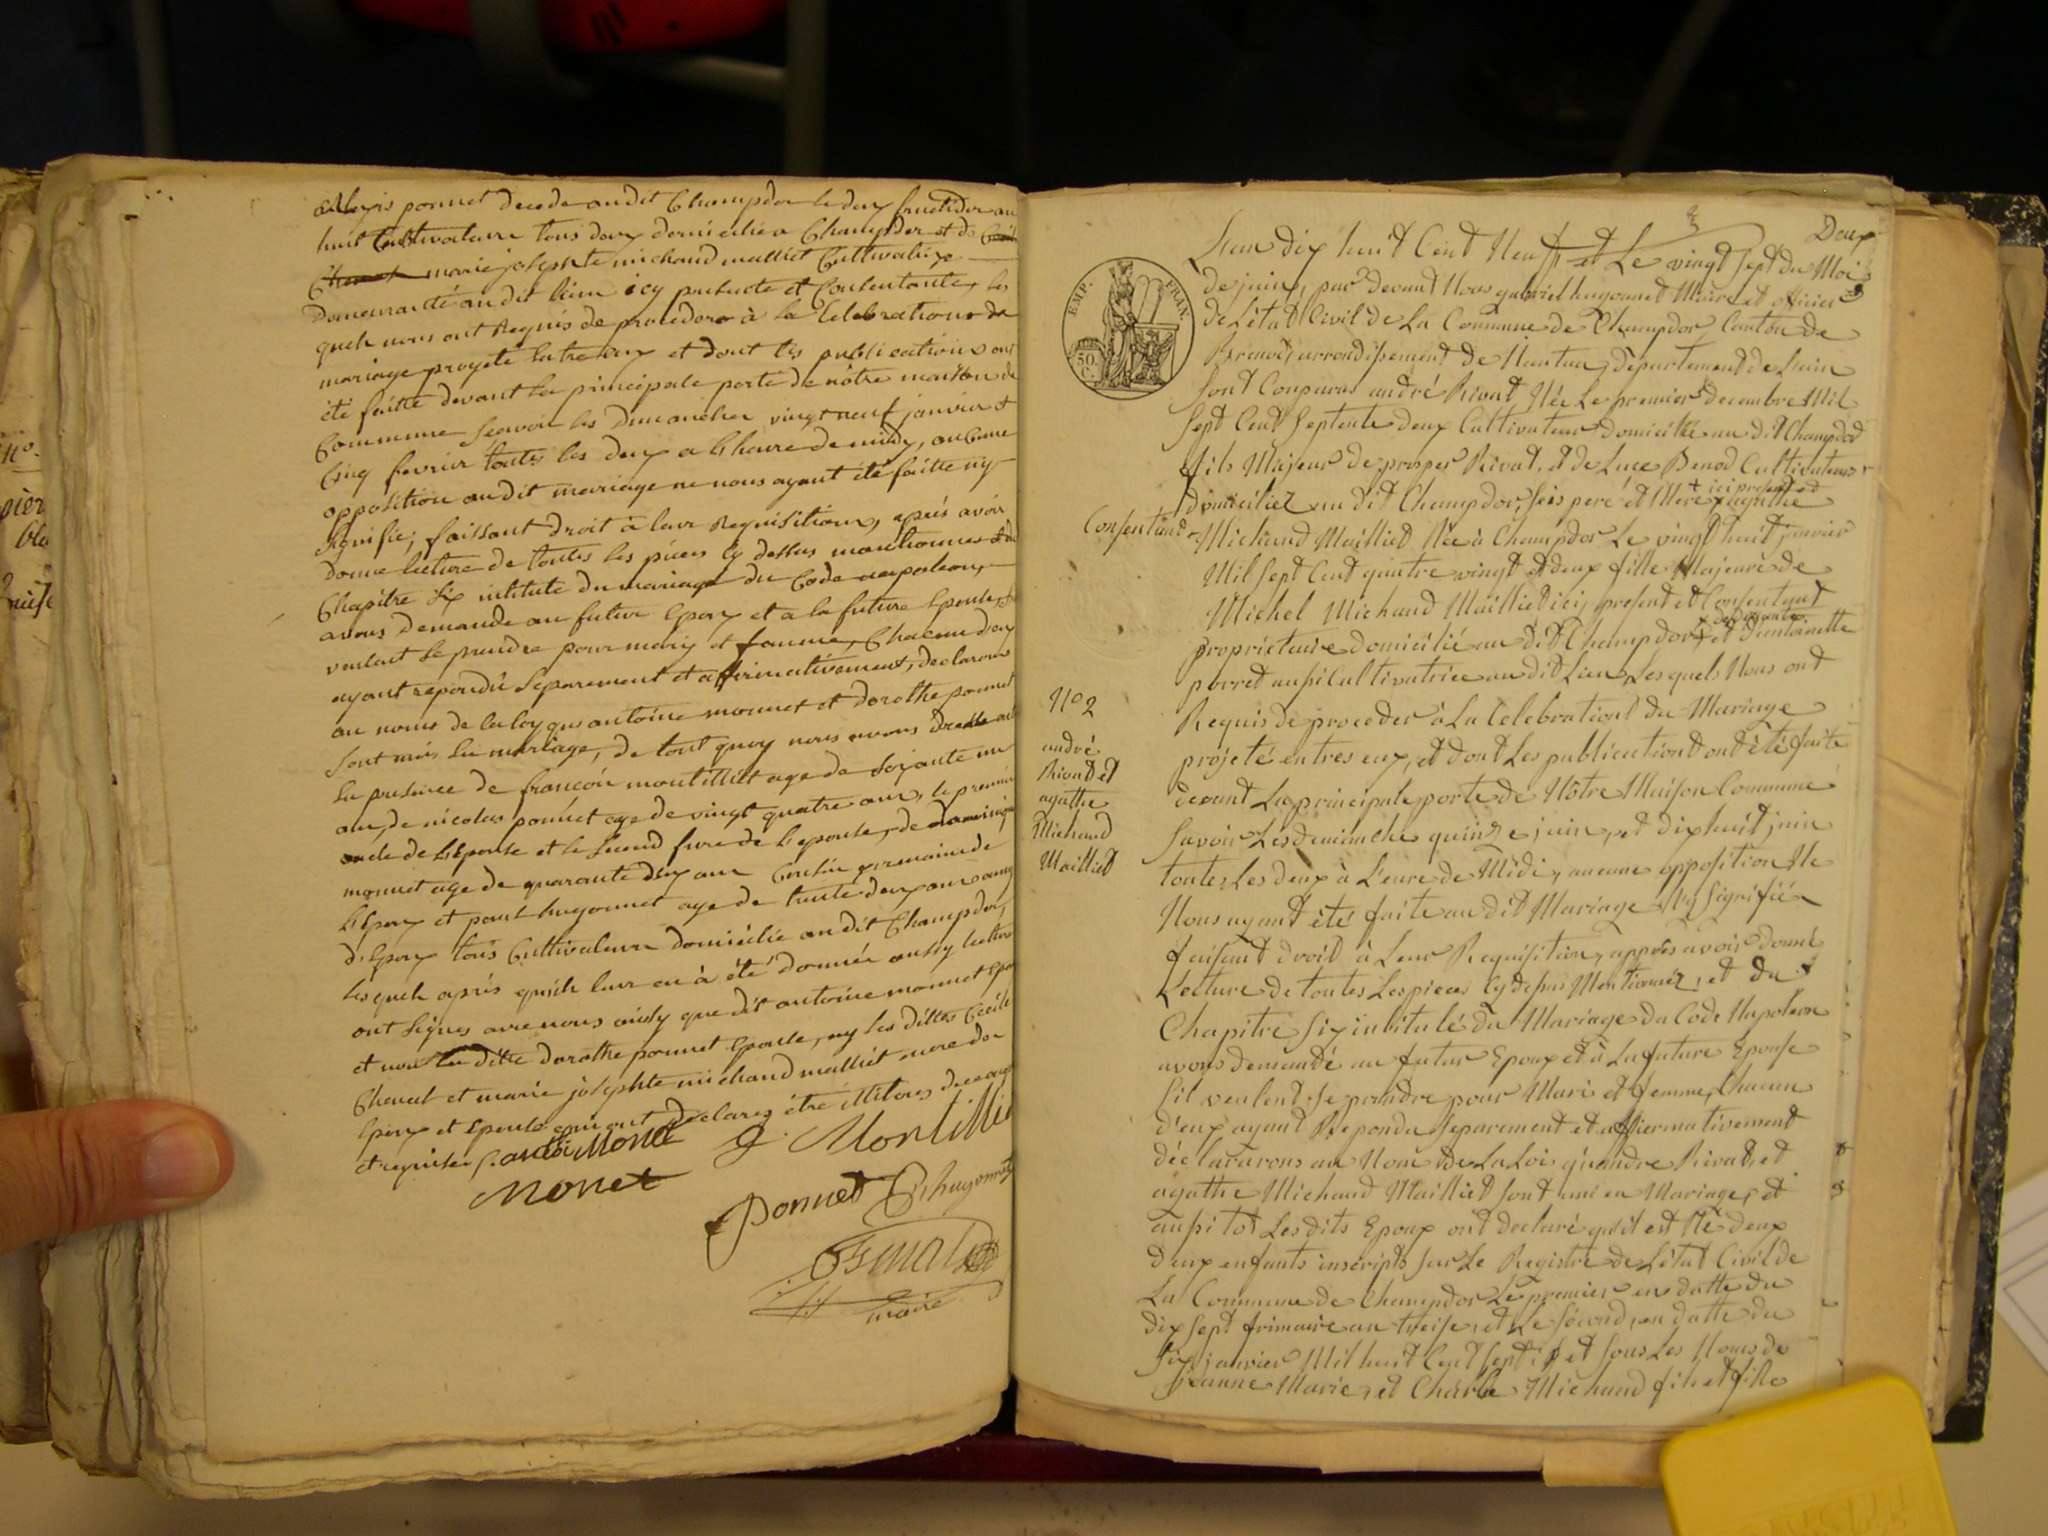 alexis ponnet decede au dit Champdor le dix fructidor an
huit Cultivateur tous deux domicilié a Champdor et de
marie josephte michaud malliet Cultivatrice
demeurante au dit lieu icy presente et Consentante, les
quels nous ont Requis de proceder à la Celebration de
mariage progeté entre eux et dont les publications ont
été faitte devant la principale porte de nôtre maison de
Commune Sçavoir les dimanches vingt neuf janvier et
Cinq fevrier toutes les deux a l'heure de midy, aucune
opposition au dit mariage ne nous ayant été faitte ny
signifié; faissant droit à leur Requisition, aprés avoir
donné lecture de toutes les pieces cy dessus mentionnes et du
Chapitre six intitulé du mariage du Code napoleon,
avons demandé au futur Epoux et a la future Epouse,
veulent se prendre pour mary et famme, Chacun d'eux
ayant repondu Separement et affirmativement, declarons
au noms de la loy que antoine monnet et dorothe ponnet
Sont unis en mariage, de tout quoy nous avons dressé acte
En presence de françois montillet age de Soixante un
ans, de nicolas ponnet age de vingt quatre ans, le premier
oncle de l'Epouse et le Second frere de l'epouse, de dominique
monnet age de quarante deux ans Cousin germain de
l'Epoux et paul hugonnet age de trente deux ans amy
d'Epoux tous Cultivateurs domicilié au dit Champdor,
les quels aprés qu'ils leur en à été donnée aussy lecture
ont Signes avec nous ainsy que dit antoine monnet Epoux
et non la ditte dorothe ponnet Epouse, ny les dittes Cecile
Chevat et marie josephte michaud malliét mere des
Epoux et Epouse qui ont declarez étre illiteres de ce enquis
et requises
Monet
Montillet
Monet
Ponnet
P. hugonnet
maire
Deux
EMP. FRAN.
50 C.
L'an dix huit Cent Neuf et Le vingt sept du Mois
de juin, par devant Nous gabriel hugonnet Maire et officier
de L'état Civil de La Commune de Champdor Canton de
Brenod, arrondissement de Nantua, département de L'ain
Sont Comparus andré Rivat Née Le premier decembre Mil
Sept Cent Septente deux Cultivateur domicillié au dit Champdor
fils Majeur de prosper Rivat, et de Luce Benod Cultivateurs
ici present et
domiciliez au dit Champdor, ses peré et Mere + agathe
Consentiant
Michaud Mailliet Née à Champdor Le vingt huit janvier
Mil Sept Cent quatre vingt et deux fille Majeure de
Michel Michaud Mailliet ici present et Consentant
propriétaire domicilié au dit Champdor + et d'entoinette
porret aussi Cultivatrice au dit Lieu, Les quels Nous ont
N° 2
andré
Rivat et
agathe
Michaud
Mailliet
Requis de proceder à La Celebrationt du Mariage
projeté entres eux, et dont Les publicationt ont été faite
devant La principale porte de Nôtre Maison Commune
Savoir Les demanche quinze juin, et dix huit juin
toutes Les deux à L'eure de Midi, aucune opposition Ne
Nous ayant été faite au dit Mariage Ny Signifiée
faisant droit à Leur Requisition, apprés avoir donné
Lecture de toutes Les pieces Cy dessus Mentionnéz, et du
Chapitre Six intitulé du Mariage du Code Napoleon
avons demandé au futur Epoux et à La future Epouse
Sil veulent Se prendre pour Mari et femme, Chacun
d'eux ayant Repondu Separement et affiermativement
déclararons au Nom de La Loi qu'andre Rivat, et
agathe Michaud Mailliet Sont uni en Mariage, et
aussitot Les dits Epoux ont declaré qu'il est Né deux
d'eux enfants inscripts Sur Le Registre de L'état Civil de
La Commune de Champdor Le premier en datte du
dix Sept frimaire an treise, et Le Sécond, en datte du
Six janvier Mil huit Cent Sept, et Sous Les Noms de
jeanne Marie, et Charle Michaud fils et fille